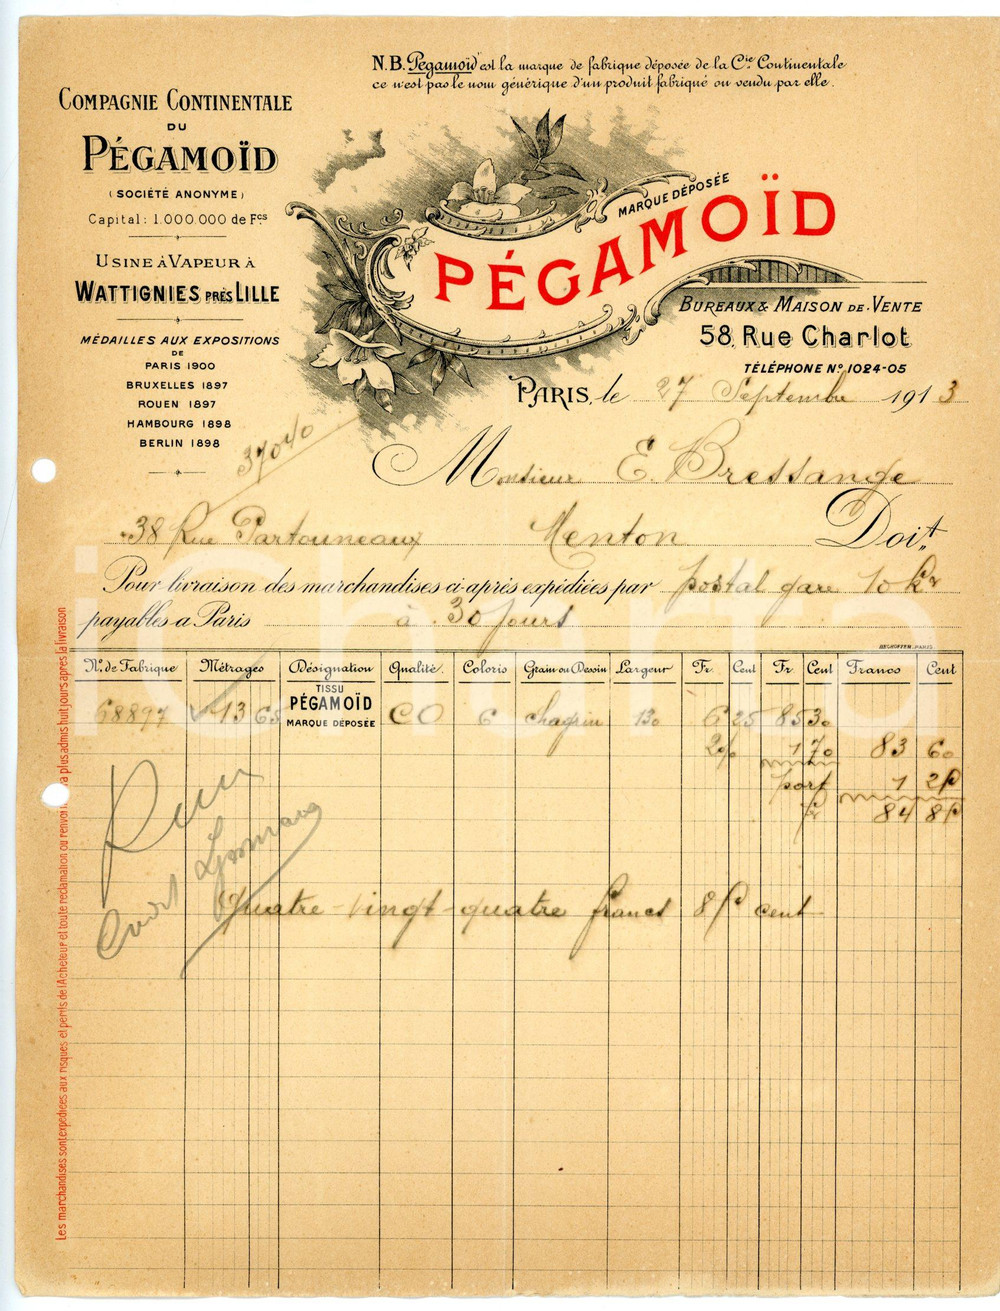 N.B. Pegamoïd est la marque de fabrique déposée de la Cie Continentale
ce n'est pas le nom générique d'un produit fabriqué ou vendu par elle.
COMPAGNIE CONTINENTALE
DU
PÉGAMOÏD
(SOCIÉTÉ ANONYME)
Capital: 1.000.000 de Fcs
USINE À VAPEUR À
WATTIGNIES PRÈS LILLE
MÉDAILLES AUX EXPOSITIONS
DE
PARIS 1900
BRUXELLES 1897
ROUEN 1897
HAMBOURG 1898
BERLIN 1898
MARQUE DÉPOSÉE
PÉGAMOÏD
BUREAUX & MAISON DE VENTE
58, Rue Charlot
TÉLÉPHONE No 1024-05
PARIS, le 27 Septembre 1913
Monsieur E. Bressange
38 Rue Partouneaux Menton Doit
Pour livraison des marchandises ci-après expédiées par postal gare 10 k
payables a Paris à 30 jours
BECHOFFEN. PARIS
No de Fabrique Métrages Désignation Qualité. Coloris Grain ou Dessin Largeur Fr. Cent Fr. Cent Francs Cent
TISSU
PÉGAMOÏD
MARQUE DÉPOSÉE
68897 13 65 CO 6 chagrin 130 6 25 85 30
2% 1 70 83 60
port 1 25
fr 84 85
Quatre-vingt-quatre francs 85 cent
Les marchandises sont expédiées aux risques et périls de l'Acheteur et toute réclamation ou renvoi
a plus admis huit jours après la livraison
iCharta